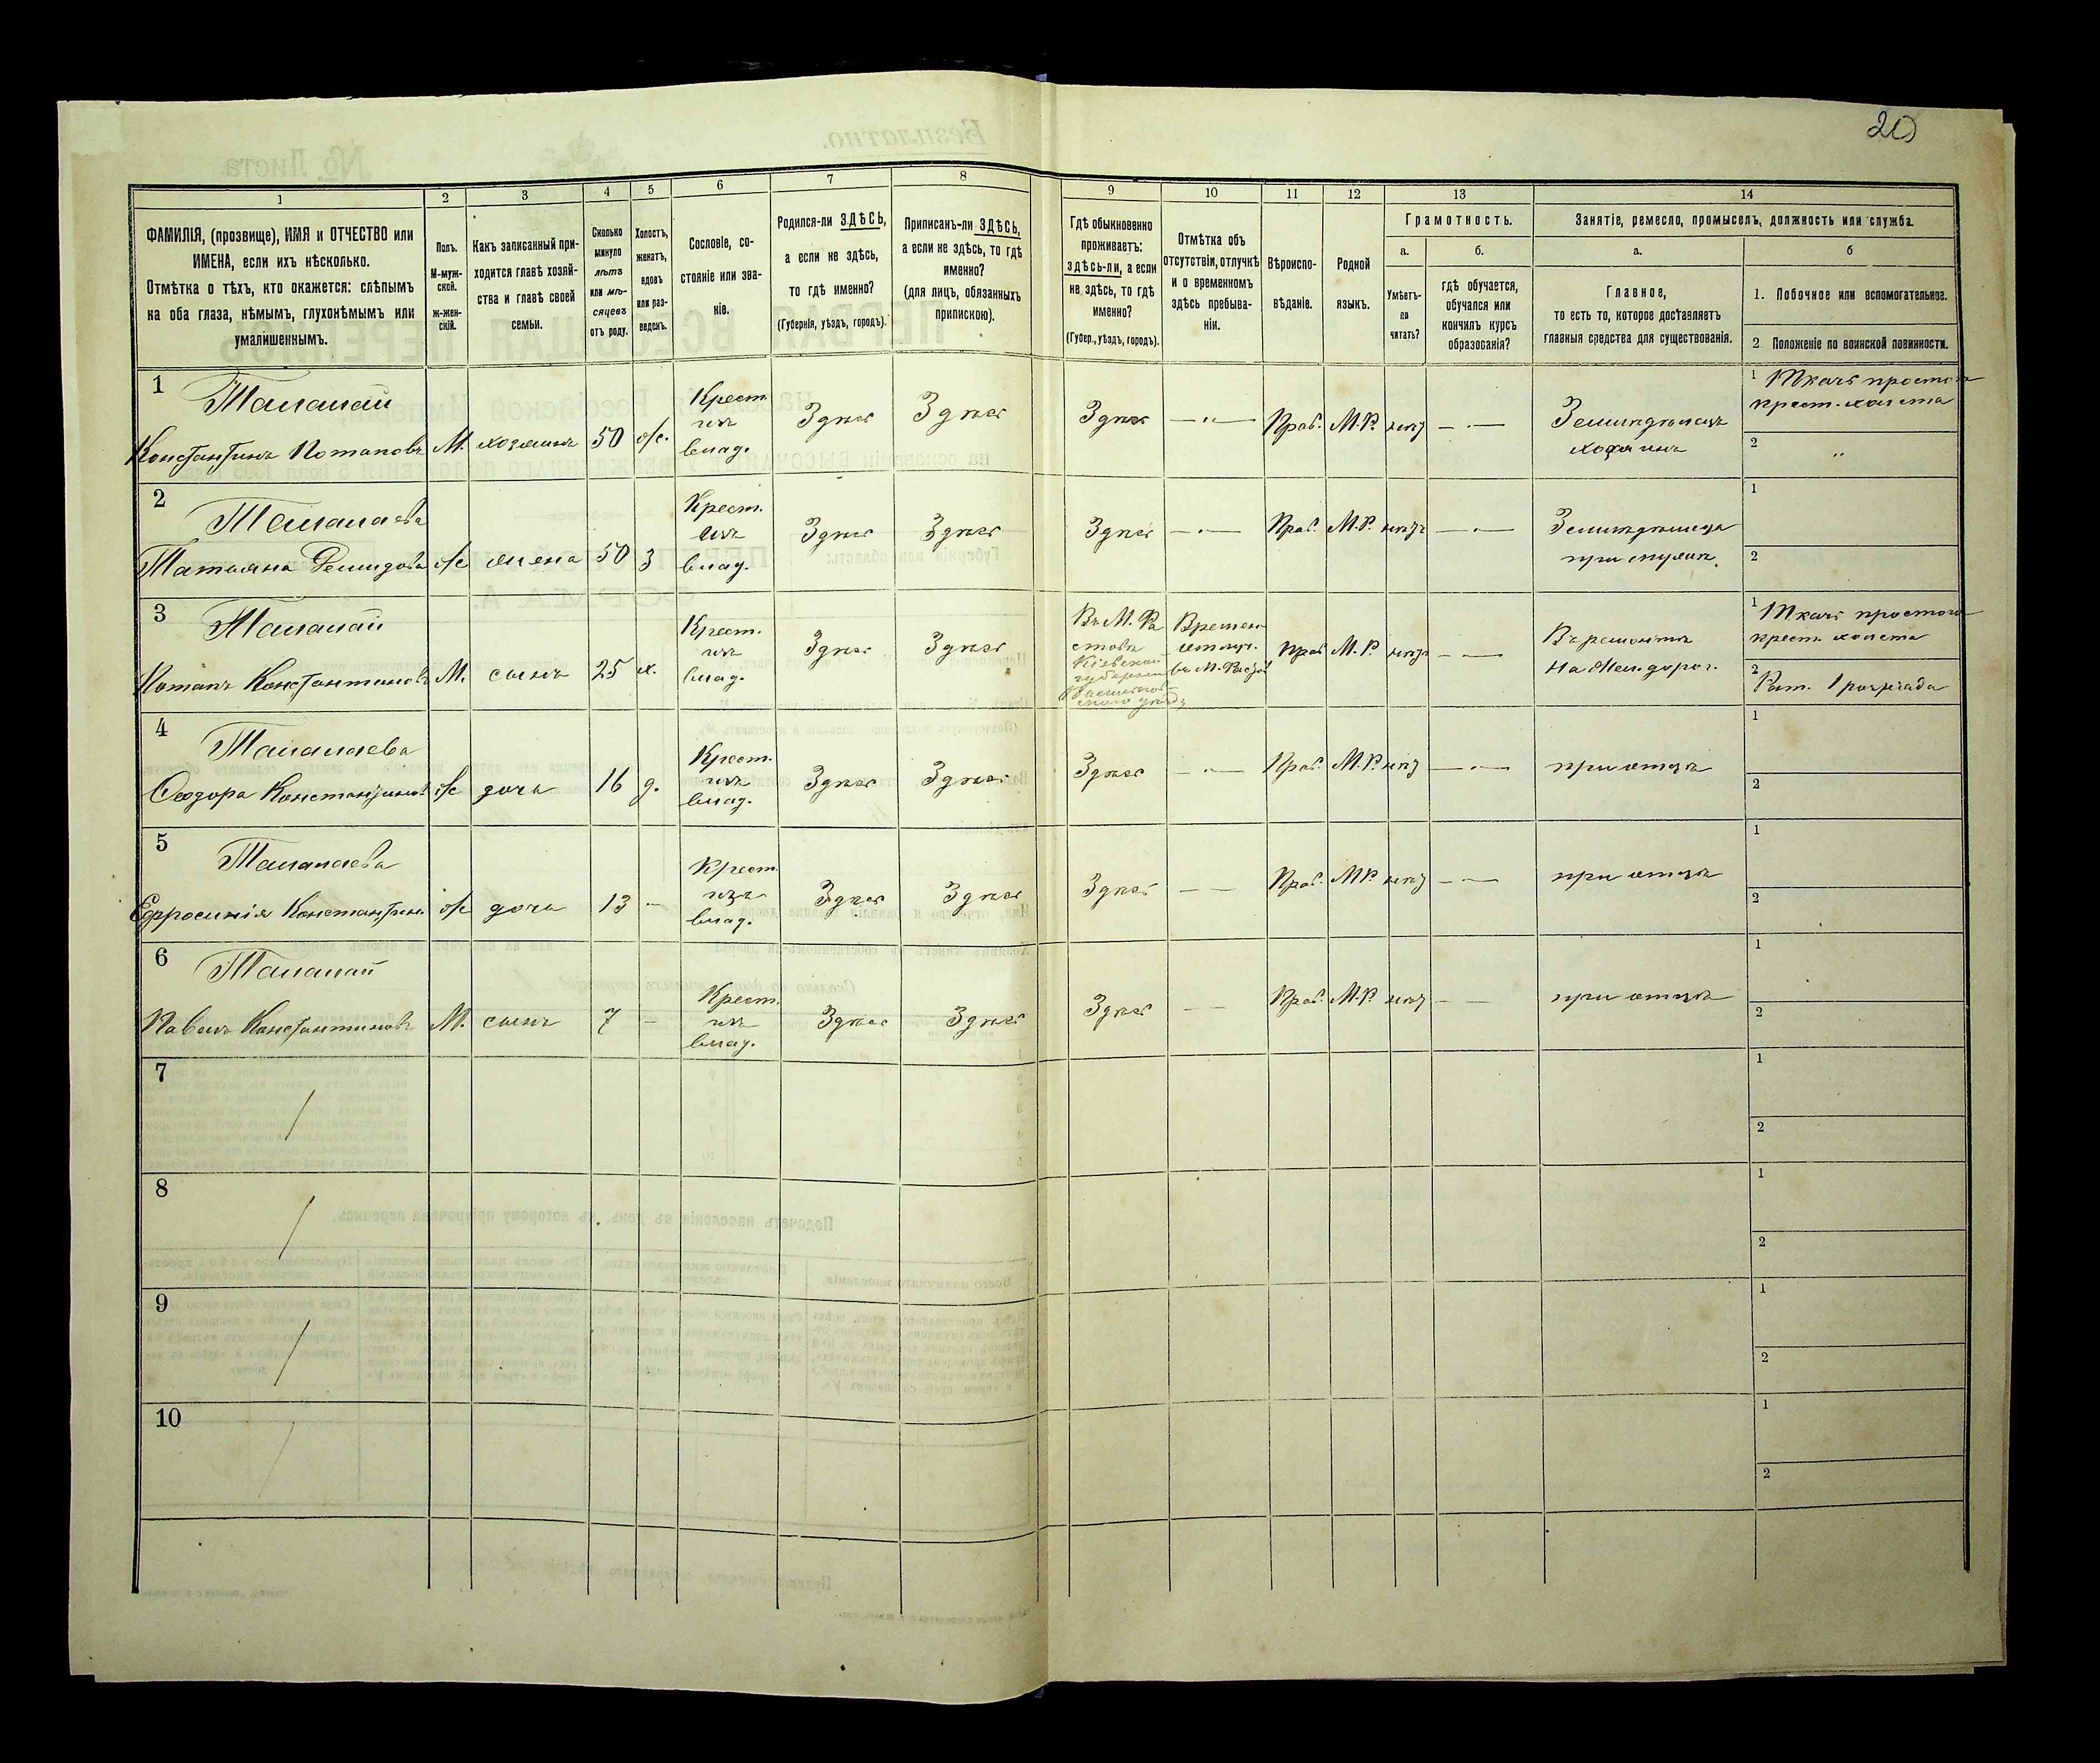 20
1
2
3
4
5
6
7
8
9
10
11
12
13
14
ФАМИЛІЯ, (прозвище), ИМЯ и ОТЧЕСТВО или
ИМЕНА, если ихъ нѣсколько.
Отмѣтка о тѣхъ, кто окажется: слѣпымъ
на оба глаза, нѣмымъ, глухонѣмымъ или
умалишеннымъ.
Полъ.
М-муж-
ской.
ж-жен-
скій.
Какъ записанный при-
ходится главѣ хозяй-
ства и главѣ своей
семьи.
Сколько
минуло
лѣтъ
или мѣ-
сяцевъ
отъ роду.
Холостъ,
женатъ,
вдовъ
или раз-
веденъ.
Сословіе, со-
стояніе или зва-
ніе.
Родился-ли ЗДѢСЬ,
а если не здѣсь,
то гдѣ именно?
(Губернія, уѣздъ, городъ).
Приписанъ-ли ЗДѢСЬ,
а если не здѣсь, то гдѣ
именно?
(для лицъ, обязанныхъ
припискою).
Гдѣ обыкновенно
проживаетъ:
ЗДѢСЬ-ли, а если
не здѣсь, то гдѣ
именно?
(Губер., уѣздъ, городъ).
Отмѣтка объ
отсутствіи, отлучкѣ
и о временномъ
здѣсь пребыва-
ніи.
Вѣроиспо-
вѣданіе.
Родной
языкъ.
Грамотность.
а.
Умѣетъ-
ли
читать?
б.
гдѣ обучается,
обучался или
кончилъ курсъ
образованія?
Занятіе, ремесло, промыселъ, должность или служба.
а.
Главное,
то есть то, которое доставляетъ
главныя средства для существованія.
б
1. Побочное или вспомогательное.
2 Положеніе по воинской повинности.
1
Талалай
Константинъ Потаповъ
М.
хозяинъ
50
ж.
Крест.
изъ
влад.
Здѣсь
Здѣсь
Здѣсь
Прав.
М.Р.
нѣтъ
Земледѣлецъ
хозяинъ
1 Ткачъ простого
крест. холста
2 "
2
Талалаева
Татьяна Демидова
ж
жена
50
з
Крест.
изъ
влад.
Здѣсь
Здѣсь
Здѣсь
Прав.
М.Р.
нѣтъ
Земледѣлица
при мужѣ.
1
2
3
Талалай
Потапъ Константиновъ
М.
сынъ
25
х.
Крест.
изъ
влад.
Здѣсь
Здѣсь
Въ М. Фа
стовѣ
Кіевской
губерніи
Васильков-
скаго уѣзда
Времен.
отлуч.
въ М. Фастов
Прав
М.Р.
нѣтъ
Въ ремонтѣ
на Жел. дорог.
1 Ткачъ простого
крест. холста
2 Рат. 1 розряда
4
Талалаева
Ѳеодора Константинов
ж
дочь
16
д.
Крест.
изъ
влад.
Здѣсь
Здѣсь
Здѣсь
Прав.
М.Р.
нѣтъ
при отцѣ
1
2
5
Талалаева
Ефросинія Константин.
ж
дочь
13
Крест.
изъ
влад.
Здѣсь
Здѣсь
Здѣсь
Прав.
М.Р.
нѣтъ
при отцѣ
1
2
6
Талалай
Павелъ Константиновъ
М.
сынъ
7
Крест.
изъ
влад.
Здѣсь
Здѣсь
Здѣсь
Прав.
М.Р.
нѣтъ
при отцѣ
1
2
7
1
2
8
1
2
9
1
2
10
1
2